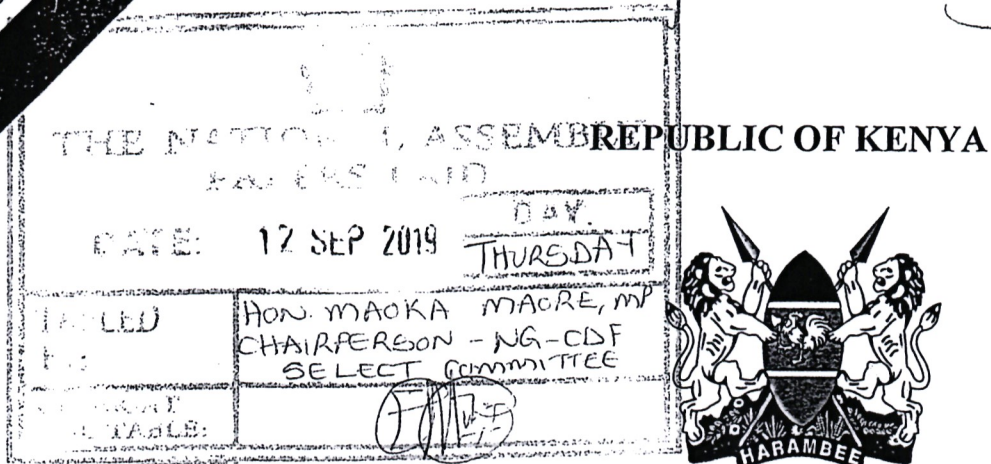 THE NATIONAL ASSEMBLY
PAPERS LAID
REPUBLIC OF KENYA
DATE: 12 SEP 2019
DAY.
THURSDAY
TABLED
BY:
HON. MAOKA MAORE, MP
CHAIRPERSON - NG-CDF
SELECT COMMITTEE
TABLE:
HARAMBEE